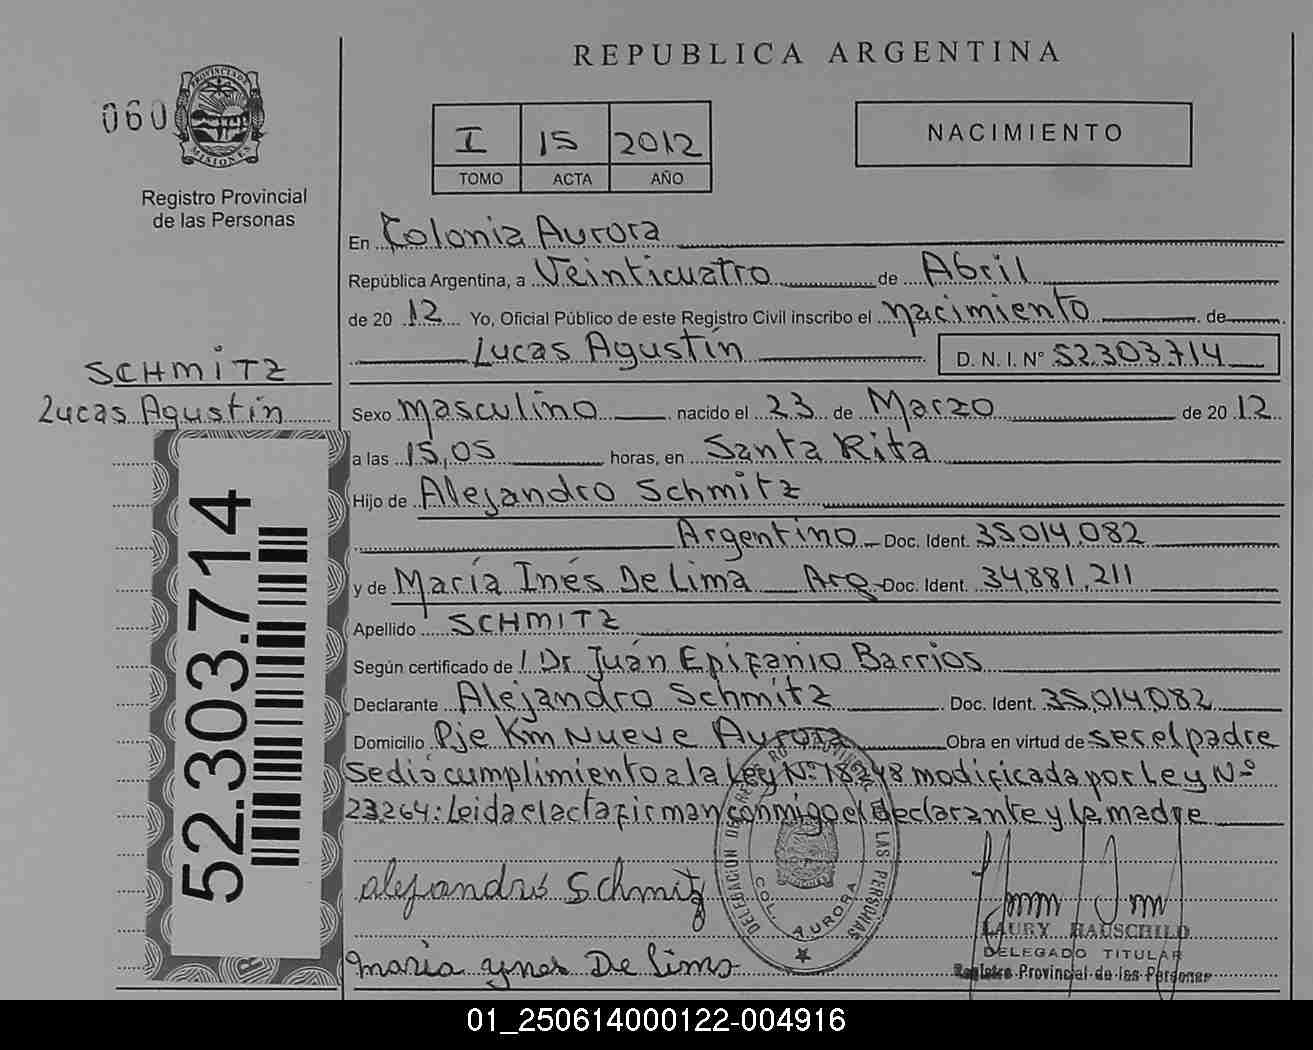 REPUBLICA ARGENTINA
060
PROVINCIA DE MISIONES
Registro Provincial
de las Personas
I 15 2012
TOMO ACTA AÑO
NACIMIENTO
En Colonia Aurora
República Argentina, a Veinticuatro de Abril
de 2012 Yo, Oficial Público de este Registro Civil inscribo el nacimiento de
Lucas Agustín D. N. I. N° 52.303.714
SCHMITZ
Lucas Agustín
52.303.714
Sexo masculino nacido el 23 de Marzo de 2012
a las 15,05 horas, en Santa Rita
Hijo de Alejandro Schmitz
Argentino Doc. Ident. 35.014.082
y de María Inés De Lima Arg Doc. Ident. 34.881.211
Apellido SCHMITZ
Según certificado de Dr Juán Epifanio Barrios
Declarante Alejandro Schmitz Doc. Ident. 35.014.082
Domicilio Pje Km Nueve Aurora Obra en virtud de ser el padre
Se dió cumplimiento a la Ley N° 18248 modificada por Ley N°
23264: Leida el acta firman conmigo el declarante y la madre
alejandro Schmitz
maria ynes De Lima
DELEGACION DEL REGISTRO PROVINCIAL DE LAS PERSONAS
COL. AURORA
LAURY HAUSCHILD
DELEGADO TITULAR
Registro Provincial de las Personas
01_250614000122-004916